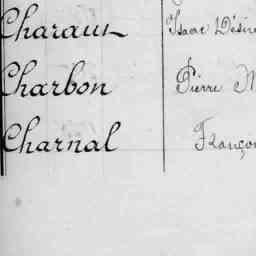 Charaux Isaac Désiré
Charbon Pierre M
Charnal Franço